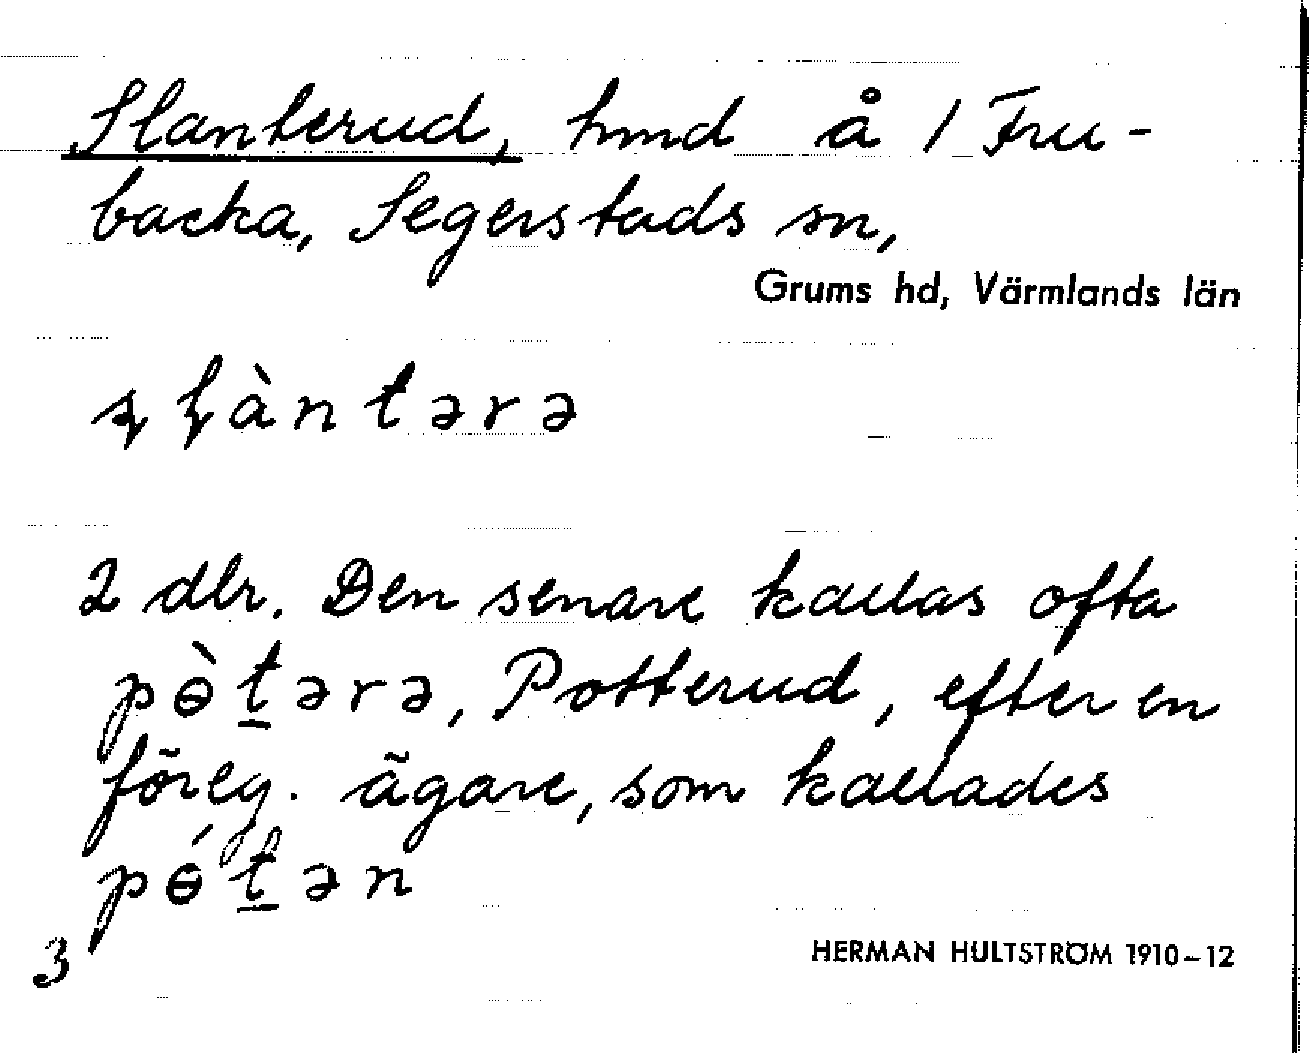 Slanterud, hmd å 1 Fru-
backa, Segerstads sn,
Grums hd, Värmlands län
ʂɭàntərə
2 dlr. Den senare kallas ofta
pɵ̀t̲ərə, Potterud, efter en
föreg. ägare, som kallades
pɵ́t̲ən
3
HERMAN HULTSTRÖM 1910-12